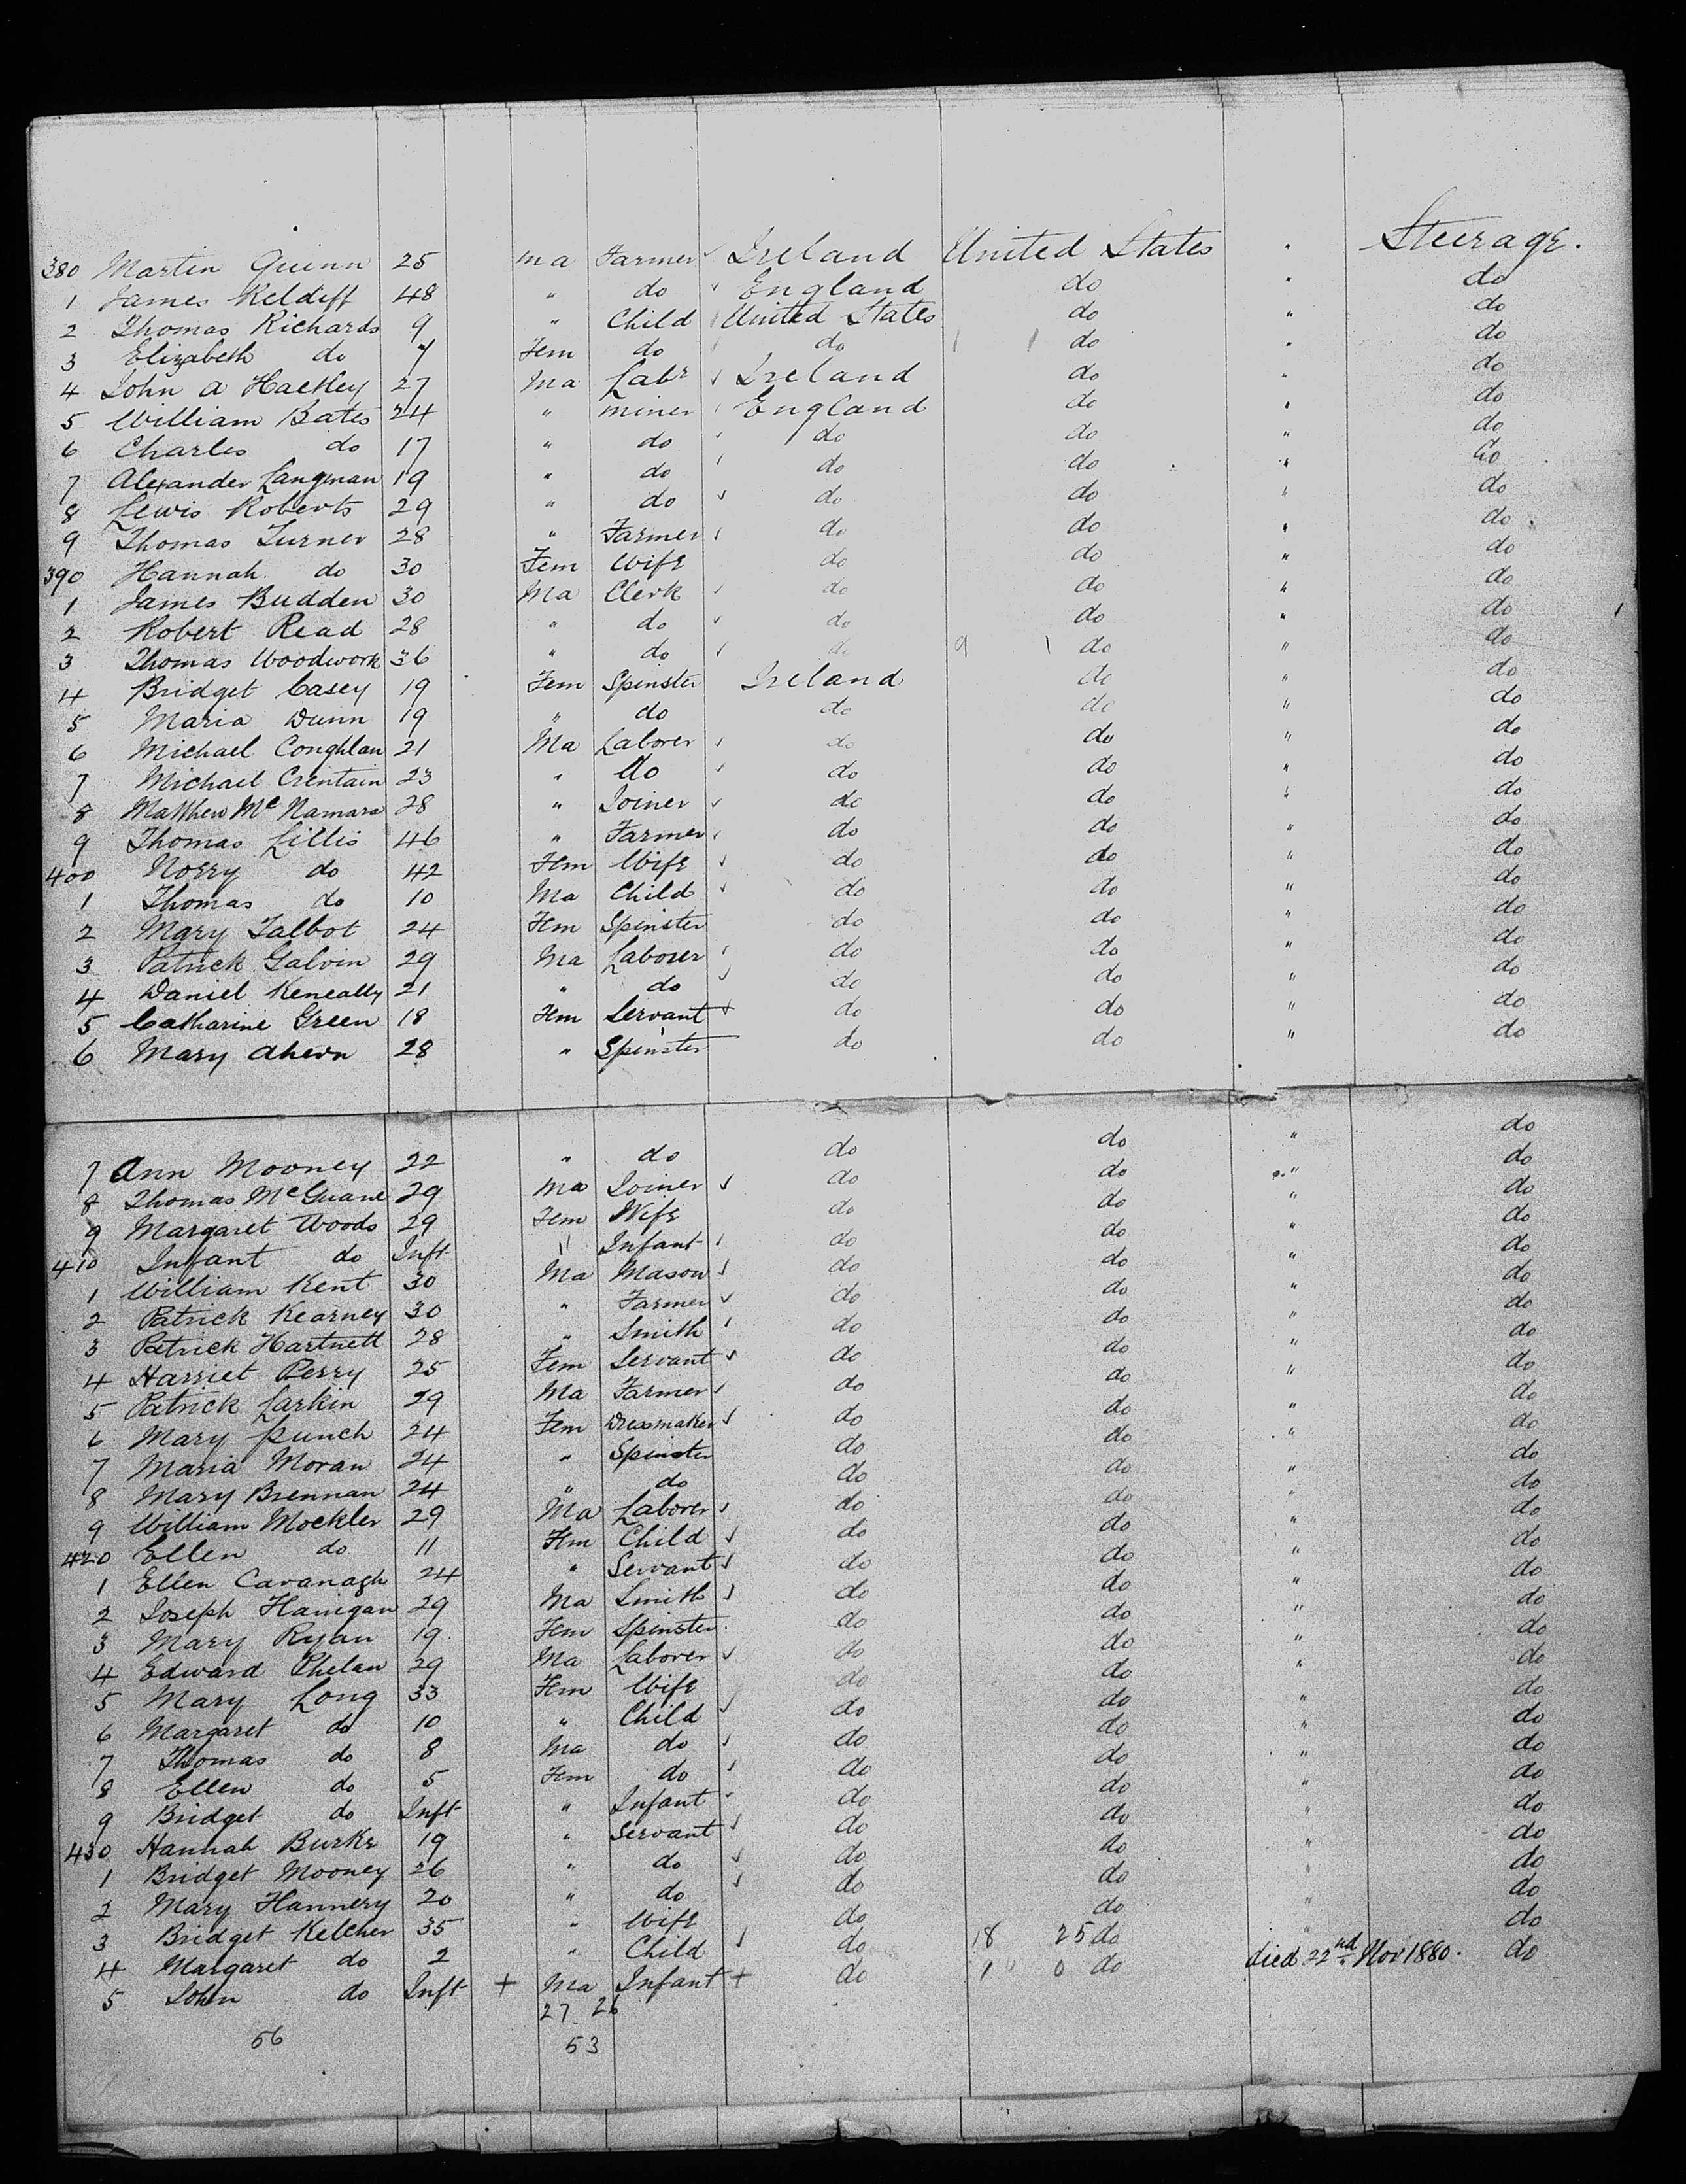 380 Martin Quinn 25 ma Farmer Ireland United States " Steerage.
1 James Reldiff 48 " do England do " do
2 Thomas Richards 9 " Child United States do " do
3 Elizabeth do 7 Fem do do do " do
4 John A Hackey 27 Ma Labr Ireland do " do
5 William Bates 24 " miner England do " do
6 Charles do 17 " do do do " do
7 Alexander Langman 19 " do do do " do
8 Lewis Roberts 29 " do do do " do
9 Thomas Turner 28 " Farmer do do " do
390 Hannah do 30 Fem Wife do do " do
1 James Budden 30 Ma Clerk do do " do
2 Robert Read 28 " do do do " do
3 Thomas Woodwork 36 " do do 9 1 do " do
4 Bridget Casey 19 Fem Spinster Ireland do " do
5 Maria Dunn 19 " do do do " do
6 Michael Coughlan 21 Ma Laborer do do " do
7 Michael Crentain 23 " do do do " do
8 Matthew McNamara 28 " Joiner do do " do
9 Thomas Lillis 46 " Farmer do do " do
400 Norry do 42 Fem Wife do do " do
1 Thomas do 10 Ma Child do do " do
2 Mary Talbot 24 Fem Spinster do do " do
3 Patrick Galvin 29 Ma Laborer do do " do
4 Daniel Keneally 21 " do do do " do
5 Catharine Green 18 Fem Servant do do " do
6 Mary Ahern 28 " Spinster do do " do
7 Ann Mooney 22 " do do do " do
8 Thomas McGuane 29 Ma Joiner do do " do
9 Margaret Woods 29 Fem Wife do do " do
410 Infant do Inft " Infant do do " do
1 William Kent 30 Ma Mason do do " do
2 Patrick Kearney 30 " Farmer do do " do
3 Patrick Hartnett 28 " Smith do do " do
4 Harriet Perry 25 Fem Servant do do " do
5 Patrick Larkin 29 Ma Farmer do do " do
6 Mary Punch 24 Fem Dressmaker do do " do
7 Maria Moran 24 " Spinster do do " do
8 Mary Brennan 24 " do do do " do
9 William Mockler 29 Ma Laborer do do " do
420 Ellen do 11 Fem Child do do " do
1 Ellen Cavanagh 24 " Servant do do " do
2 Joseph Hanigan 29 Ma Smith do do " do
3 Mary Ryan 19 Fem Spinster do do " do
4 Edward Phelan 29 Ma Laborer do do " do
5 Mary Long 33 Fem Wife do do " do
6 Margaret do 10 " Child do do " do
7 Thomas do 8 Ma do do do " do
8 Ellen do 5 Fem do do do " do
9 Bridget do Inft " Infant do do " do
430 Hannah Burke 19 " Servant do do " do
1 Bridget Mooney 26 " do do do " do
2 Mary Flannery 20 " do do do " do
3 Bridget Kelcher 35 " Wife do do " do
4 Margaret do 2 " Child do 18 25 do " do
5 John do Inft + Ma Infant + do 1 0 do died 22nd Nov 1880. do
27 26
56 53